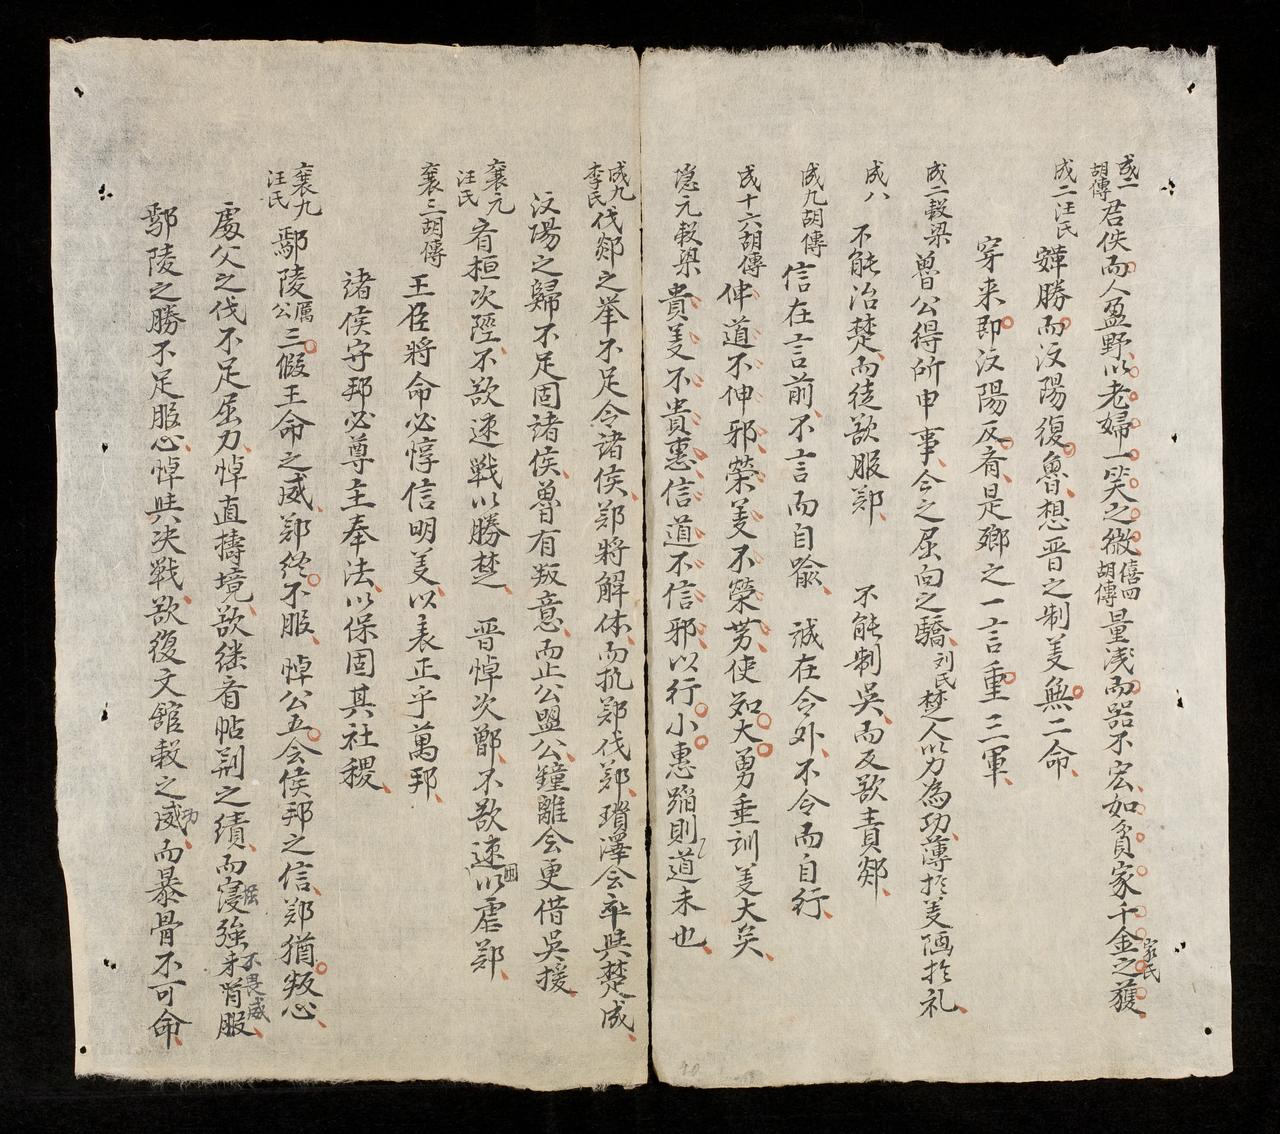 成二胡傳君佚而人盈野以老婦一笑之微僖四胡傳量淺而器不宏如貧家千金之獲家氏
成二汪氏鞌勝而汶陽復魯想晋之制羙無二命
穿来即汶陽反者是鄉之一言重三軍
成二穀梁曽公得所申事今之屈向之驕刘氏楚人以力為功薄於羙陋於礼
成八不能治楚而徒欲服鄭 不能制吳而反欲責郯
成九胡傳信在言前不言而自喻 誠在令外不令而自行
成十六胡傳伸道不伸邪榮羙不榮势使知大勇垂訓羙大矣
隐元穀梁貴羙不貴惠信道不信邪以行小惠蹈則道未也
成九李氏伐郯之举不足令諸侯鄭將解体而抗鄭伐鄭瑣澤会卒與楚成
汶陽之歸不足固諸侯魯有叛意而止公盟公鐘離会更借吳援
襄元汪氏斉桓次陘不欲速戰以勝楚 晋悼次鄫不欲速以虐鄭
襄三胡傳王臣將命必惇信明羙以表正乎萬邦
諸侯守邦必尊主奉法以保固其社稷
襄九汪氏鄢陵厲公三假王命之威鄭終不服 悼公五会侯邦之信鄭猶叛心
處父之伐不足屈力悼直擣境欲継斉帖荆之績而寝強未肯服不畏威
鄢陵之勝不足服心悼與决戰欲復文舘穀之威功而暴骨不可命